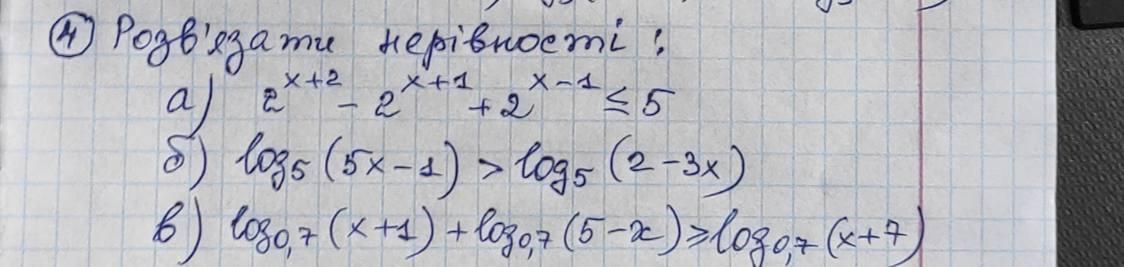 ④ Розв'язати нерівності:
а) 2^{x+2} - 2^{x+1} + 2^{x-1} ≤ 5
б) log₅(5x-1) > log₅(2-3x)
в) log₀,₇(x+1) + log₀,₇(5-x) ≥ log₀,₇(x+7)